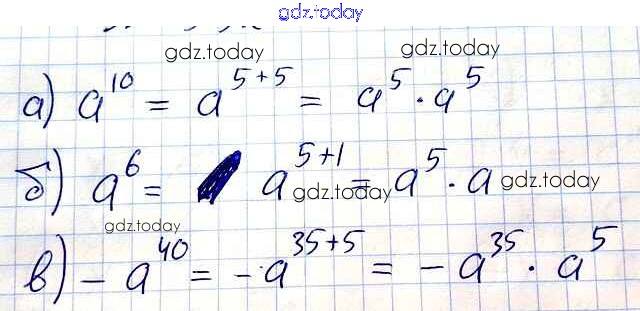 gdz.today
gdz.today gdz.today
а) a^10 = a^(5+5) = a^5 · a^5
б) a^6 = a^(5+1) = a^5 · a
gdz.today gdz.today
gdz.today
в) -a^40 = -a^(35+5) = -a^35 · a^5